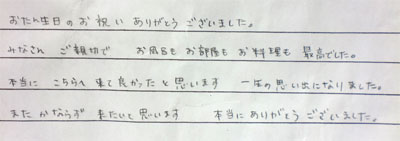 おたん生日のお祝い ありがとう ございました。
みなさん ご親切で お風呂も お部屋も お料理も 最高でした。
本当に こちらへ 来て良かったと思います 一生の思い出になりました。
また かならず 来たいと思います 本当に ありがとう ございました。